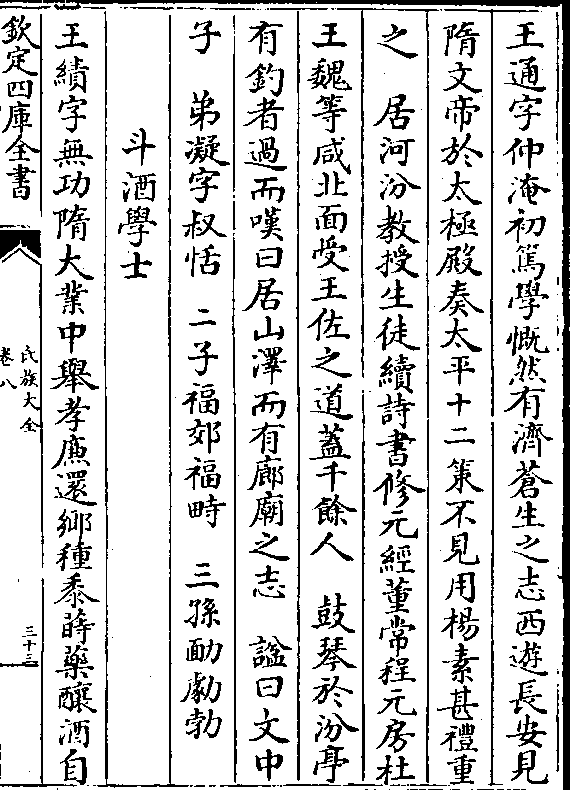 王通字仲淹初篤學慨然有濟蒼生之志西遊長安見
隋文帝於太極殿奏太平十二策不見用楊素甚禮重
之　居河汾教授生徒續詩書修元經董常程元房杜
王魏等咸北面受王佐之道蓋千餘人　鼓琴於汾亭
有釣者過而嘆曰居山澤而有廊廟之志　諡曰文中
子　弟凝字叔恬　二子福郊福畤　三孫勔勮勃
斗酒學士
王績字無功隋大業中舉孝廉還鄉種黍蒔藥釀酒自
欽定四庫全書
氏族大全
卷八
三十三